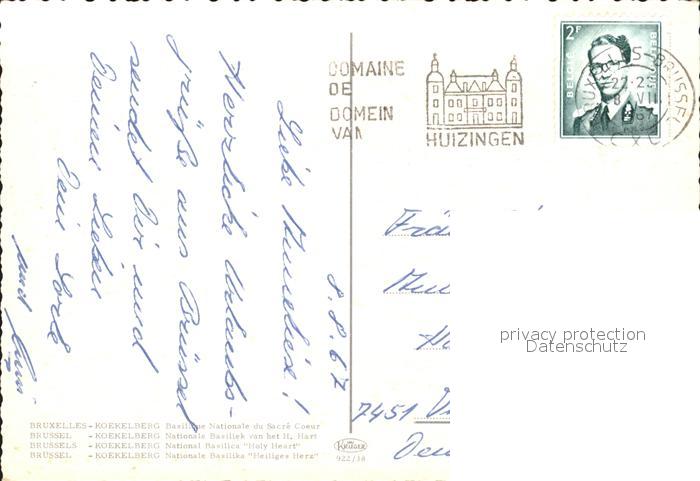 8.8.67
Liebe Annelies!
Herzliche Urlaubs-
grüße aus Brüssel
sendet Dir und
Deinen Lieben
Dein Lord
und
DOMAINE
DE
DOMEIN
VAN
HUIZINGEN
2F
BELGIE
BELGIQUE
BRUXELLES-BRUSSEL
67
Frä
7451
privacy protection
Datenschutz
BRUXELLES - KOEKELBERG Basilique Nationale du Sacré Coeur
BRUSSEL - KOEKELBERG Nationale Basiliek van het H. Hart
BRUSSELS - KOEKELBERG National Basilica "Holy Heart"
BRÜSSEL - KOEKELBERG Nationale Basilika "Heiliges Herz"
KRÜGER
922/38